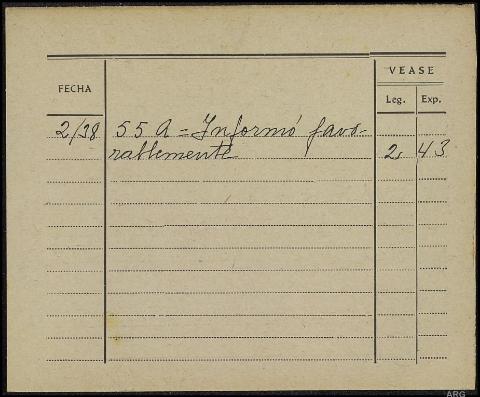 VEASE
FECHA
Leg. Exp.
2/38 55 A = Informó favo-
rablemente 2, 43
ARG